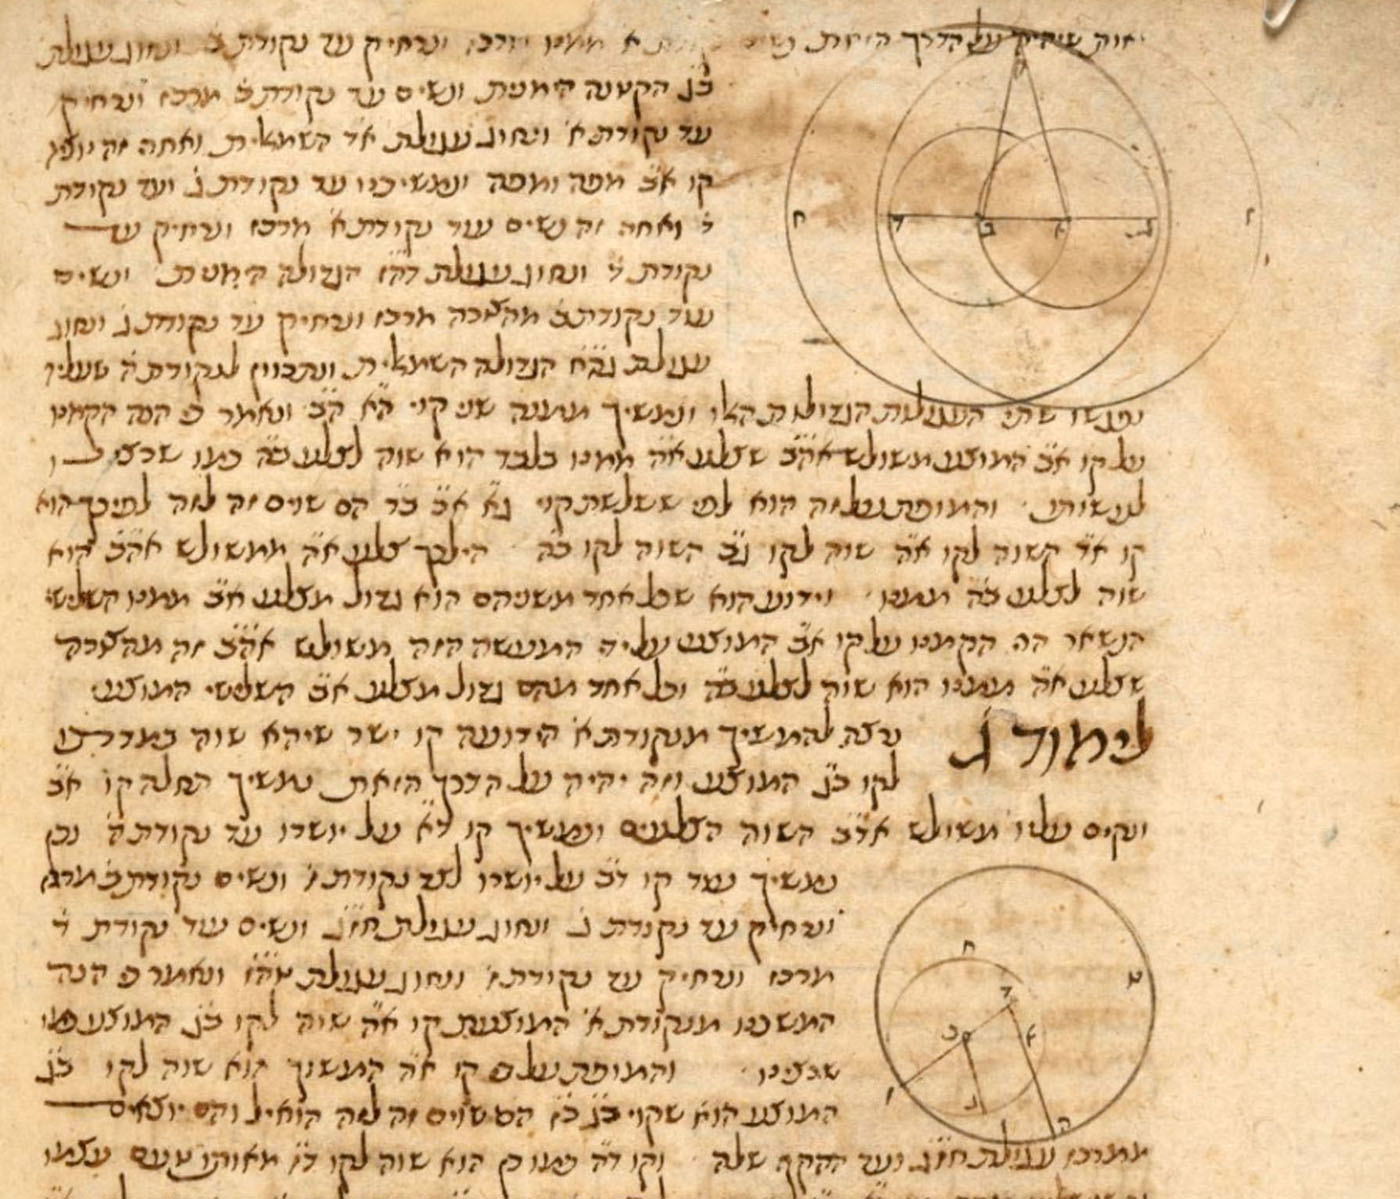 יאות שיהיה על הדרך הזאת נשים נקודת א ממנו מרכז ונרחיק עד נקודת ב ונחוג עגולת
בג הקטנה הימנית ונשים עד נקודת ב מרכז ונרחיק
עד נקודת א ונחוג עגולת אד השמאלית ואחר זה נוציא
קו אב מפה ומפה ונמשיכנו עד נקודת ג ועד נקודת
ד ואחר זה נשים עוד נקודת א מרכז ונרחיק עד
נקודת ד ונחוג עגולת דהז הגדולה הימנית ונשים
עוד נקודת ב מהצורה מרכז ונרחיק עד נקודת ג ונחוג
עגולת גהח הגדולה השמאלית ונתכוין לנקודת ה שעליה
נפגשו שתי העגולות הגדולות האלו ונמשיך ממנה שני קוי הא הב ונאמר כי הנה הקמנו
על קו אב המוצע משולש אהב שצלע אה ממנו בלבד הוא שוה לצלע בה כמו שרצינו
לעשותו והמופת על זה הוא לפי ששלשת קוי גא אב בד הם שוים זה לזה לפיכך הוא
קו אד השוה לקו אה שוה לקו גב השוה לקו בה הילכך צלע אה ממשולש אהב הוא
שוה לצלע בה ממנו וידוע הוא שכל אחד משניהם הוא גדול מצלע אב ממנו השלישי
הנשאר הנה הקמנו על קו אב המוצע עליה המעשה הזה משולש אהב זה מהצורה
שצלע אה ממנו הוא שוה לצלע בה וכל אחד מהם גדול מצלע אב השלישי המוצע
לימוד ג נרצה להמשיך מנקודת א הידועה קו ישר שיהא שוה במדרגתו
לקו בג המוצע וזה יהיה על הדרך הזאת נמשיך תחלה קו אב
ונקים עליו משולש אדב השוה הצלעים ונמשיך קו דא על יושרו עד נקודת ה וכן
נמשיך עוד קו דב על יושרו לעד נקודת ז ונשים נקודת ב מרכז
ונרחיק עד נקודת ג ונחוג עגולת חזג ונשים עוד נקודת ד
מרכז ונרחיק עד נקודת ז ונחוג עגולת טהז ונאמר כי הנה
המשכנו מנקודת א המוצעת קו אה שוה לקו בג המוצע כמו
שרצינו והמופת על כי קו אה המשוך הוא שוה לקו בג
המוצע הוא שקוי בג בז הם שוים זה לזה הואיל והם יוצאים
ממרכז עגולת חזג ועד ההקף שלה וקו דה כמו כן הוא שוה לקו דז מאותו טעם עצמו